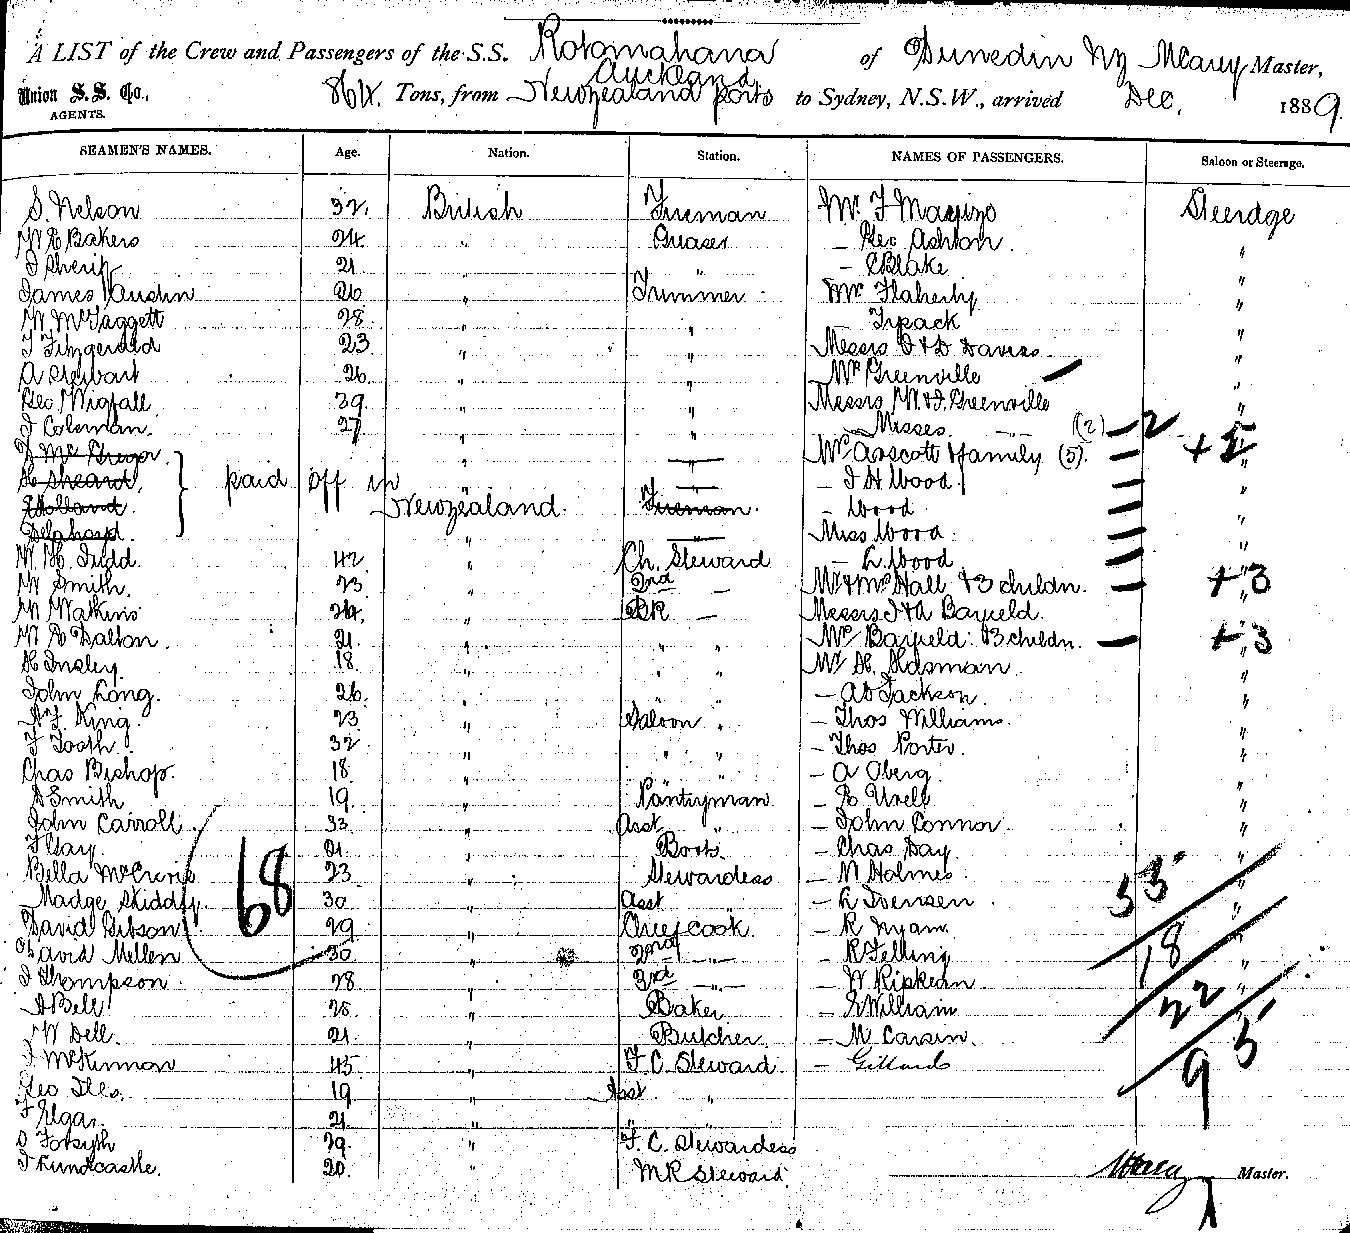 A LIST of the Crew and Passengers of the S.S. Rotomahana of Dunedin NZ MCarey Master,
Union S. S. Co., AGENTS. 864 Tons, from Auckland Newzealand ports to Sydney, N.S.W., arrived Dec. 1889.
SEAMEN'S NAMES. Age. Nation. Station. NAMES OF PASSENGERS. Saloon or Steerage.
S. Nelson 32. British Fireman Mr. F Steerdge
W E Bakers 24 " Greaser — Geo Ashton. "
J Sheriff 21 " " — C Blake "
James Austin 26 " Trimmer Mr Flaherty "
W McTaggett 28 " " "
J Fitzgerald 23 " " Messrs & D Davies "
A Stewart 26 " " Mrs Greenville "
Geo Wigfall 39 " " Messrs W & J. Greenville "
J Coleman. 27 " " — Misses. —"— (2) — 2 "
McGregor. " — Mr Arscott & family (5). — + "
H Sheard. } paid off in " — — J H Wood. — "
Holland Newzealand. Fireman — Wood — "
Delahoyd. " — Miss Wood. — "
W. H. Judd. 42 " Ch. Steward — L. Wood — "
W Smith. 23 " 2nd — Mr & Mrs Hall & 3 childn. — + 3 "
W Watkins 24 " BR — Messrs J & A Bayfield. "
W E Dalton. 21 " " " Mrs Bayfield. & 3 childn. — + 3 "
H Insley. 18 " " " Mr H. "
John Long. 26. " " " — A D Jackson. "
King. 23 " Saloon " — Thos Williams. "
F Tooth. 32 " " " — Thos Porter. "
Chas Bishop. 18 " " " — A Oberg. "
Smith 19 " Pantryman — "
John Carroll. 33 " Asst " — John Connor. "
F Gay. 21 " Boots. — Chas Day. "
Bella 23 " Stewardess — N Holmes. 53 "
Madge Skiddy 68 30 " Asst " — L "
David Gibson 29 " Chief cook. — R "
David Mellen 30 " 2nd —"— — R Felling 18 "
J Thompson. 28 " 3rd —"— — W "
Bell 25 " Baker — William 22
W Dell. 21 " Butcher. — M Carsin.
J McKinnon 45 " F. C. Steward — 95
Geo 19 " Asst "
F Elgar. 21 " "
Forsyth 29. " F. C. Stewardess
20. " M R Steward. MCarey Master.